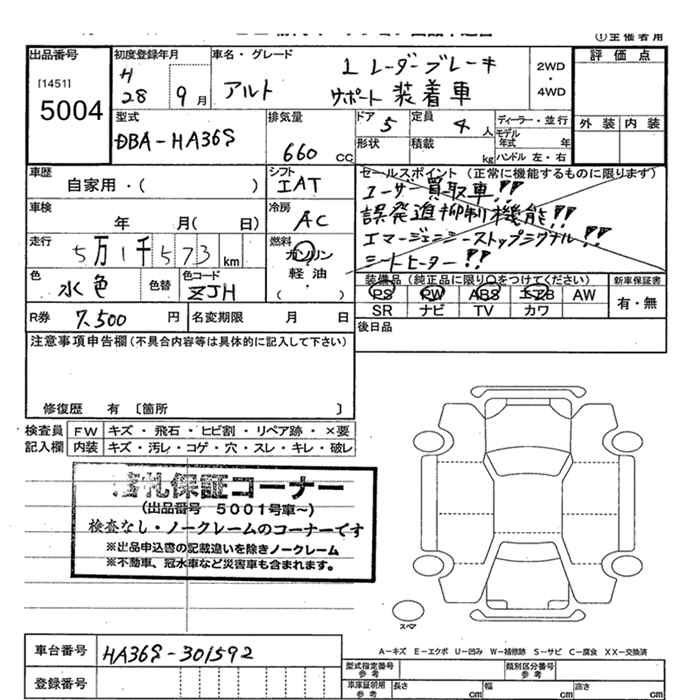 ①主催者用
出品番号
[1451]
5004
初度登録年月
H
28 9月
車名・グレード
アルト
レーダーブレーキ
サポート 装着車
2WD
・
4WD
評価点
外装 内装
型式
DBA-HA36S
排気量
660 cc
ドア
5
形状
定員
4 人
積載
kg
ディーラー・並行
モデル
年式 年
ハンドル 左・右
車歴
自家用・( )
シフト
IAT
セールスポイント (正常に機能するものに限ります)
ユーザー買取車!!
誤発進抑制機能!!
エマージェンシーストップシグナル!!
シートヒーター!!
車検
年 月( 日)
冷房
AC
走行
5万1千573km
燃料
ガソリン
軽油・
( )
色
水色
色替
色コード
ZJH
装備品 (純正品に限り○をつけてください)
PS PW ABS エアB AW
SR ナビ TV カワ
新車保証書
有・無
R券 7,500 円
名変期限 月 日
後日品
注意事項申告欄(不具合内容等は具体的に記入して下さい)
修復歴 有 〔箇所 〕
検査員 FW キズ・飛石・ヒビ割・リペア跡・×要
記入欄 内装 キズ・汚レ・コゲ・穴・スレ・キレ・破レ
落札保証コーナー
(出品番号 5001号車~)
検査なし・ノークレームのコーナーです
※出品申込書の記載違いを除きノークレーム
※不動車、冠水車など災害車も含まれます。
スペア
A-キズ E-エクボ U-凹み W-補修跡 S-サビ C-腐食 XX-交換済
車台番号 HA36S-301592
登録番号
型式指定番号
参考
類別区分番号
参考
車庫証明用
参考
長さ cm
幅 cm
高さ cm